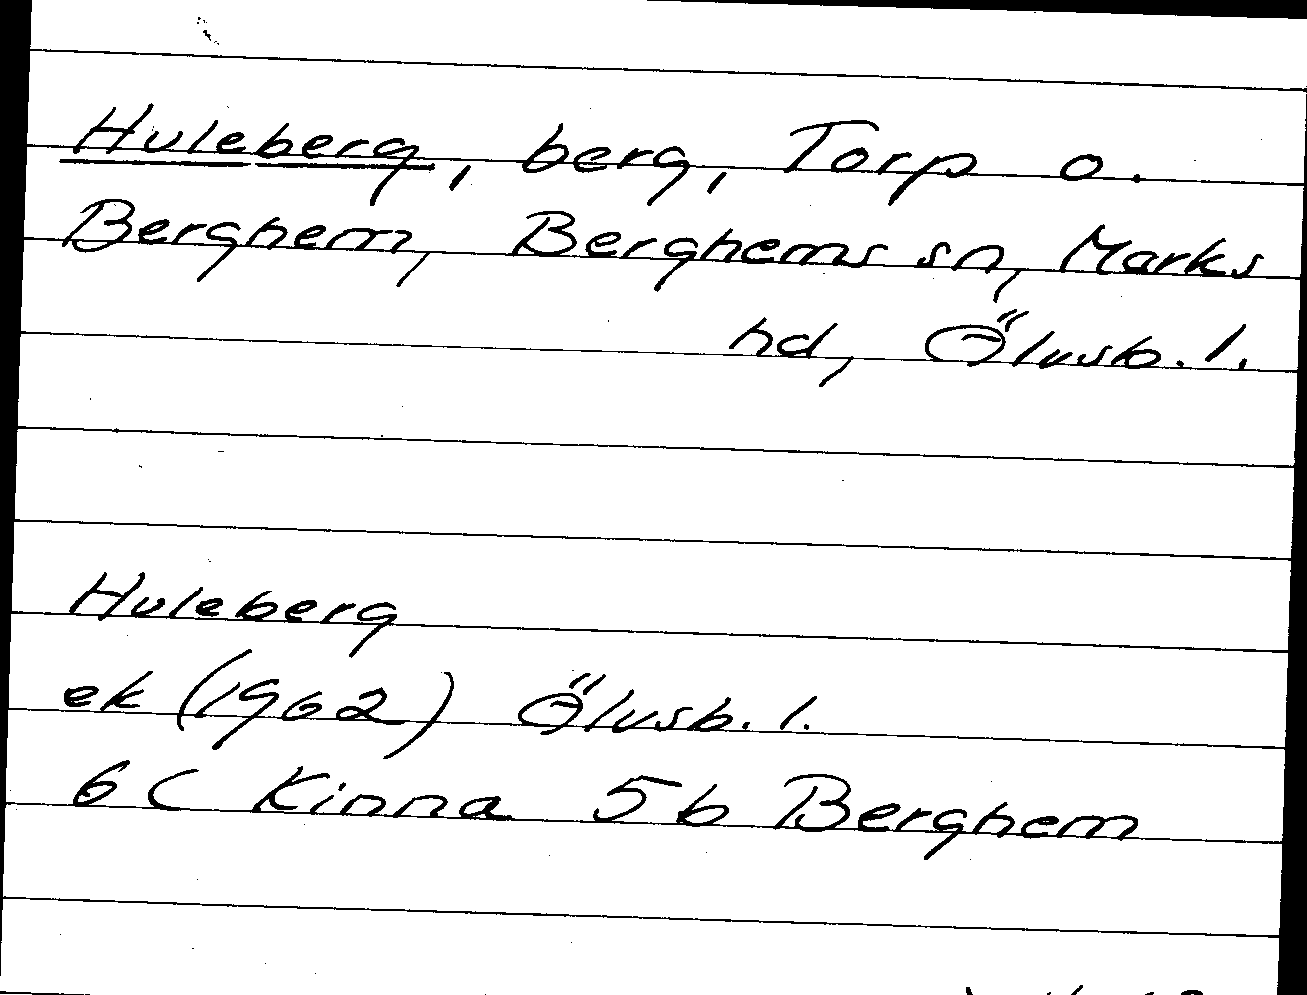 Huleberg, berg, Torp o.
Berghem, Berghems sn, Marks
hd, Älvsb. l.
Huleberg
ek (1962) Älvsb. l.
6 C Kinna 5 b Berghem